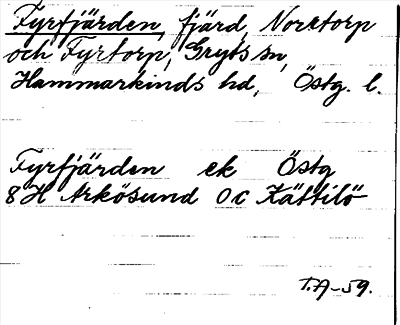 Fyrfjärden, fjärd, Norrtorp
och Fyrtorp, Gryts sn,
Hammarkinds hd, Östg. l.
Fyrfjärden ek Östg
8H Arkösund 0c Kättilö
T.A-59.